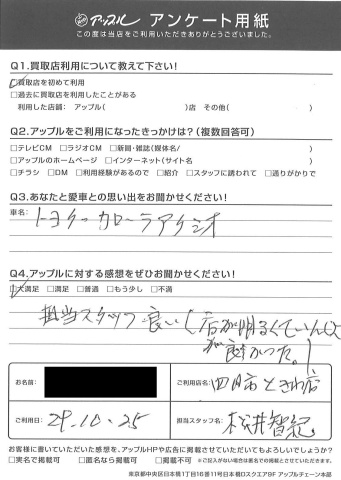 アップル アンケート用紙
この度は当店をご利用いただきありがとうございました。
Q1.買取店利用について教えて下さい!
□買取店を初めて利用
□過去に買取店を利用したことがある
利用した店舗: アップル( )店 その他( )
Q2.アップルをご利用になったきっかけは?(複数回答可)
□テレビCM □ラジオCM □新聞・雑誌(媒体名/ )
□アップルのホームページ □インターネット(サイト名 )
□チラシ □DM □利用経験があるので □紹介 □スタッフに誘われて □通りがかりで
Q3.あなたと愛車との思い出をお聞かせください!
車名:
トヨタ カローラアクシオ
Q4.アップルに対する感想をぜひお聞かせください!
□大満足 □満足 □普通 □もう少し □不満
担当スタッフ 良い(店が明るくて
が良かった。)
お名前:
ご利用店名: 四日市ときわ店
ご利用日: 29.10.25
担当スタッフ名: 松井智紀
お客様に書いていただいた感想を、アップルHPや広告に掲載させていただいてもよろしいでしょうか?
□実名で掲載可 □匿名なら掲載可 □掲載不可 ※ご記入がない場合は匿名での掲載とさせていただきます。
東京都中央区日本橋1丁目16番11号日本橋Dスクエア9F アップルチェーン本部